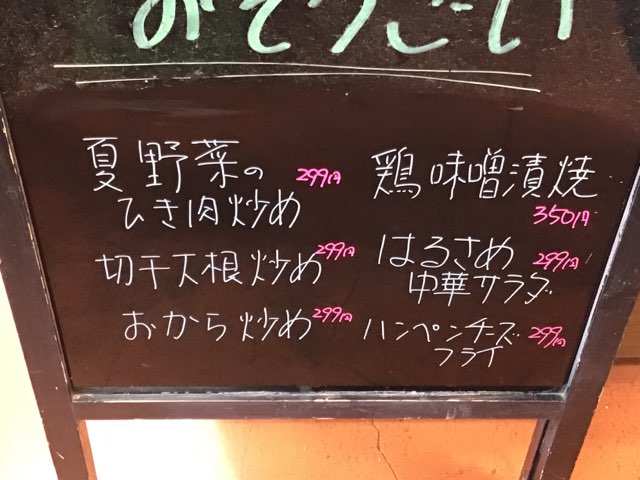 おそうざい
夏野菜の 299円
ひき肉炒め
切干大根炒め 299円
おから炒め 299円
鶏味噌漬焼
350円
はるさめ 299円
中華サラダ
ハンペンチーズ 299円
フライ